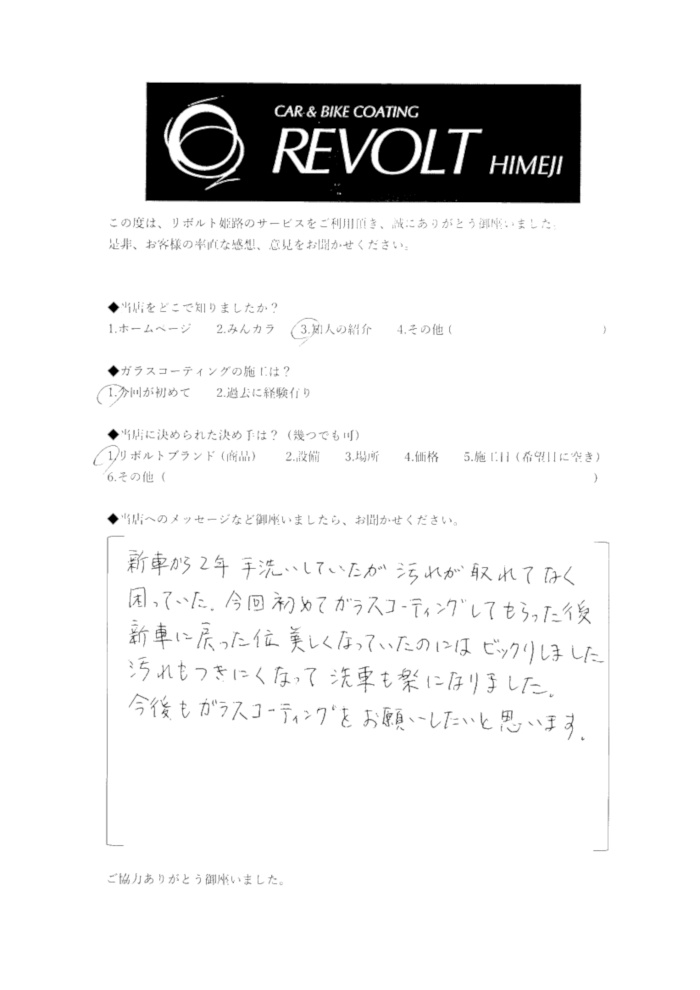 CAR & BIKE COATING
REVOLT HIMEJI
この度は、リボルト姫路のサービスをご利用頂き、誠にありがとう御座いました。
是非、お客様の率直な感想、意見をお聞かせください。
◆当店をどこで知りましたか？
1.ホームページ　2.みんカラ　3.知人の紹介　4.その他（　　　）
◆ガラスコーティングの施工は？
1.今回が初めて　2.過去に経験有り
◆当店に決められた決め手は？（幾つでも可）
1.リボルトブランド（商品）　2.設備　3.場所　4.価格　5.施工日（希望日に空き）
6.その他（　　　）
◆当店へのメッセージなど御座いましたら、お聞かせください。
新車から2年 手洗いしていたが 汚れが取れてなく
困っていた。今回初めてガラスコーティングしてもらった後
新車に戻った位 美しくなっていたのには ビックリしました
汚れもつきにくくなって 洗車も楽になりました。
今後もガラスコーティングをお願いしたいと思います。
ご協力ありがとう御座いました。